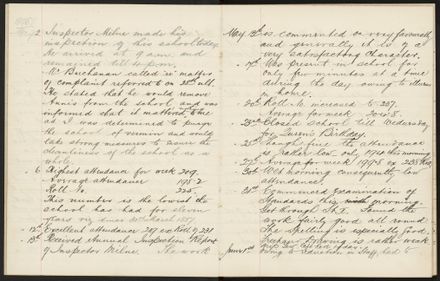 May 2 Inspector Milne made his
inspection of his school today
He arrived at 9 a.m. and
remained till 4 p.m.
Mr Buchanan called in matter
of complaint referred to on 28th ult.
He stated that he would remove
Annis from the school and was
informed that it mattered to me
as I was determined to purge
the school of vermin and would
take strong measures to insure the
cleanliness of the school as a
whole.
6 Highest attendance for week 209.
Average attendance 198.2
Roll No. 225.
This number is the lowest the
school has had for eleven
years viz. since 1887.
12th Excellent attendance 207 ex Roll of 231
13th Received Annual Inspection Report
of Inspector Milne. The work
May is commented on very favourably
and generally it is of a
very satisfactory character.
17th Was present in school for
only few minutes at a time
during the day owing to illness
in home.
20th Roll No. increased to 237.
Average for week 204.8.
23rd Closed School till Wednesday
for Queen's Birthday.
25th Though fine the attendance
is rather low only 190 this morning
27th Average for week 199.5 ex 238 Roll
30th Wet morning consequently low
attendance.
31st Commenced Examination of
Standards this morning.
Got through St 2. Found the
work fairly good all round.
The spelling is especially good.
Freehand Drawing is rather weak
June 1st owing to reduction in Staff, had to